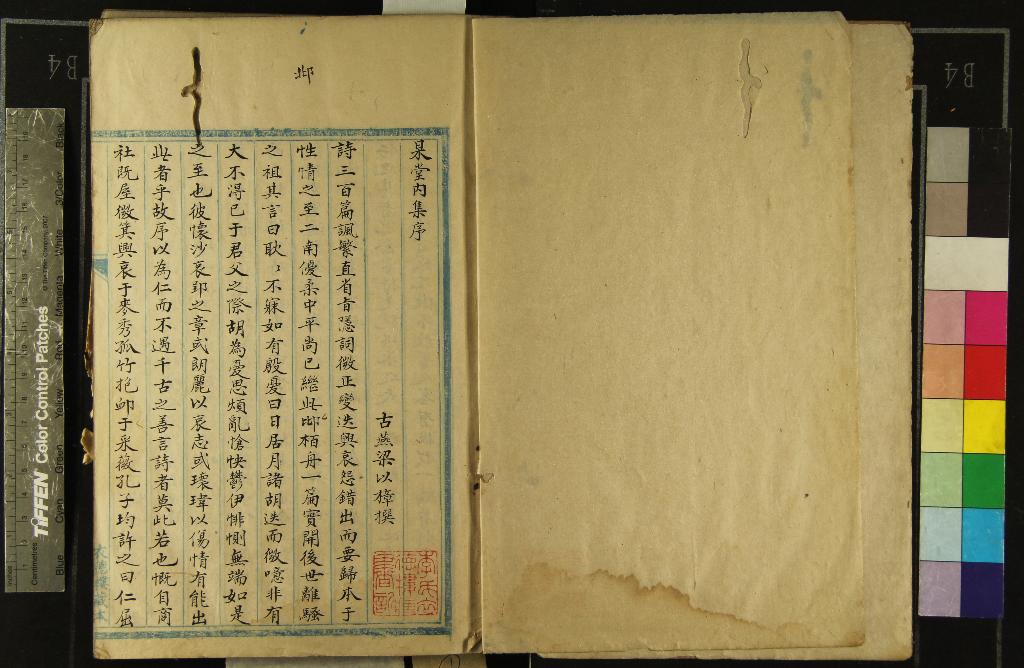 邶
杲堂內集序
古燕梁以樟撰
詩三百篇諷繁直省旨隱詞微正變迭興哀怨錯出而要歸本于
性情之至二南優柔中平尚已繼此邶栢舟一篇實開後世離騷
之祖其言曰耿〻不寐如有殷憂曰日居月諸胡迭而微噫非有
大不得已于君父之際胡為憂思煩亂愴怏鬱伊悱惻無端如是
之至也彼懷沙哀郢之章或朗麗以哀志或瓌瑋以傷情有能出
此者乎故序以為仁而不遇千古之善言詩者莫此若也慨自商
社既屋微箕興哀于麥秀孤竹抱䘏于采薇孔子均許之曰仁屈
B4
B4
TIFFEN Color Control Patches
Blue
Cyan
Green
Yellow
Red
Magenta
White
3/Color
Black
Centimetres
Inches